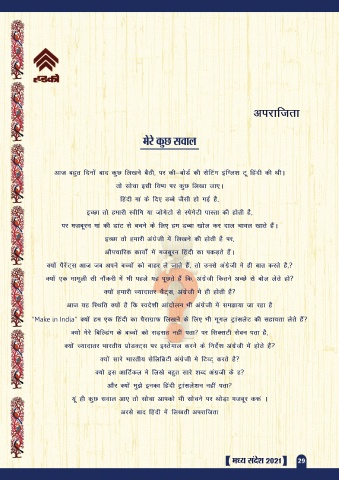 हडको
अपराजिता
मेरे कुछ सवाल
आज बहुत दिनों बाद कुछ लिखने बैठी, पर की–बोर्ड की सेटिंग इंग्लिश टू हिंदी की थी।
तो सोचा इसी विषय पर कुछ लिखा जाए।
हिंदी मां के दिए डब्बे जैसी हो गई है,
इच्छा तो हमारी स्वीगि या जोमेटो से स्पेगेटी पास्ता की होती है,
पर मजबूरन मां की डांट से बचने के लिए हम डब्बा खोल कर दाल चावल खाते हैं।
इच्छा तो हमारी अंग्रेजी में लिखने की होती है पर,
औपचारिक कार्यों में मजबूरन हिंदी का पकड़ते हैं।
क्यों पैरेंट्स आज जब अपने बच्चों को बाहर ले जाते हैं, तो उनसे अंग्रेजी में ही बात करते है,?
क्यों एक मामूली सी नौकरी में भी पहले यह पूछते है कि, अंग्रेजी कितने अच्छे से बोल लेते हो?
क्यों हमारी ज्यादातर चैट्स, अंग्रेजी में ही होती है?
आज यह स्थिति क्यों है कि स्वदेशी आंदोलन भी अंग्रेजी में समझाया जा रहा है
"Make in India" क्यों हम एक हिंदी का पैराग्राफ लिखने के लिए भी गूगल ट्रांसलेट की सहायता लेते हैं?
क्यों मेरे बिल्डिंग के बच्चों को सड़सठ नहीं पता? पर सिक्सटी सेवन पता है,
क्यों ज्यादातर भारतीय प्रोडक्ट्स पर इस्तेमाल करने के निर्देश अंग्रेजी में होते हैं?
क्यों सारे भारतीय सेलिब्रिटी अंग्रेजी में ट्विट् करते है?
क्यों इस आर्टिकल में लिखे बहुत सारे शब्द अंग्रेजी के है?
और क्यों मुझे इनका हिंदी ट्रांसलेशन नहीं पता?
यूं ही कुछ सवाल आए तो सोचा आपको भी सोचने पर थोड़ा मजबूर करूं ।
अरसे बाद हिंदी में लिखती अपराजिता
मध्य संदेश 2021
29